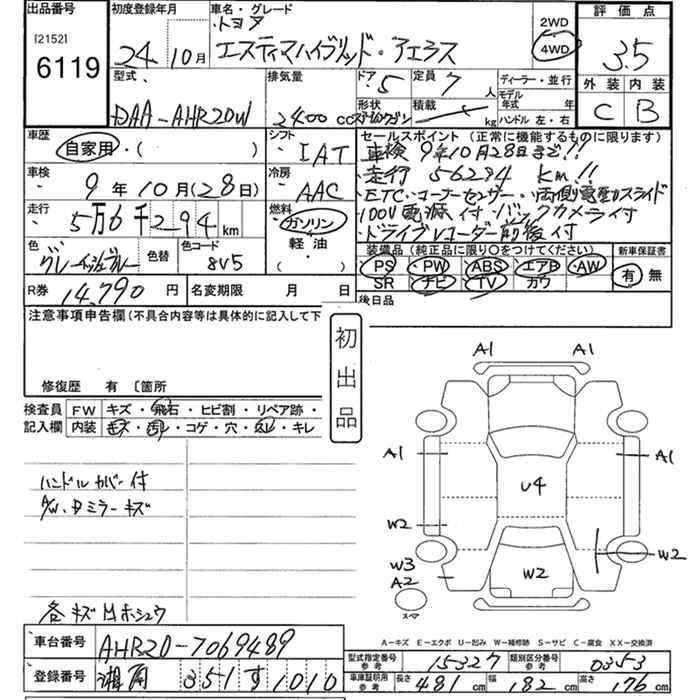 出品番号
[2152]
6119
初度登録年月
24年10月
車名・グレード
トヨタ
エスティマハイブリッド・アエラス
2WD
4WD
評価点
3.5
外装 内装
C B
型式
DAA-AHR20W
排気量
2400 cc
ドア 5
定員 7人
形状
ステーションワゴン
積載 kg
ディーラー・並行
モデル年式 年
ハンドル 左・右
車歴
自家用・( )
シフト
IAT
セールスポイント(正常に機能するものに限ります)
車検 9年10月28日まで!!
走行 56294 km!!
ETC・コーナーセンサー・両側電動スライド
100V電源付・バックカメラ付
・ドライブレコーダー前後付
車検
9年10月(28日)
冷房
AAC
走行
5万6千294km
燃料
ガソリン
軽油
( )
色
色替
色コード
8V5
装備品(純正品に限り○をつけてください)
PS PW ABS エアB AW
SR ナビ TV カワ
新車保証書
有 無
R券 14,790円
名変期限 月 日
後日品
注意事項申告欄(不具合内容等は具体的に記入して下
初出品
修復歴 有 〔箇所
検査員記入欄
FW キズ・飛石・ヒビ割・リペア跡・
内装 キズ・汚レ・コゲ・穴・スレ・キレ
ハンドルカバー付
A/W、Dミラーキズ
各キズ凹ホシュウ
A1 A1
A1 A1
U4
W2 W2
W3
A2
W2
スペア
A-キズ E-エクボ U-凹み W-補修跡 S-サビ C-腐食 XX-交換済
車台番号 AHR20-7069489
登録番号 湘南 351 す 1010
型式指定番号 参考 15327
類別区分番号 参考 0353
車庫証明用 参考 長さ 481cm 幅 182cm 高さ 176cm